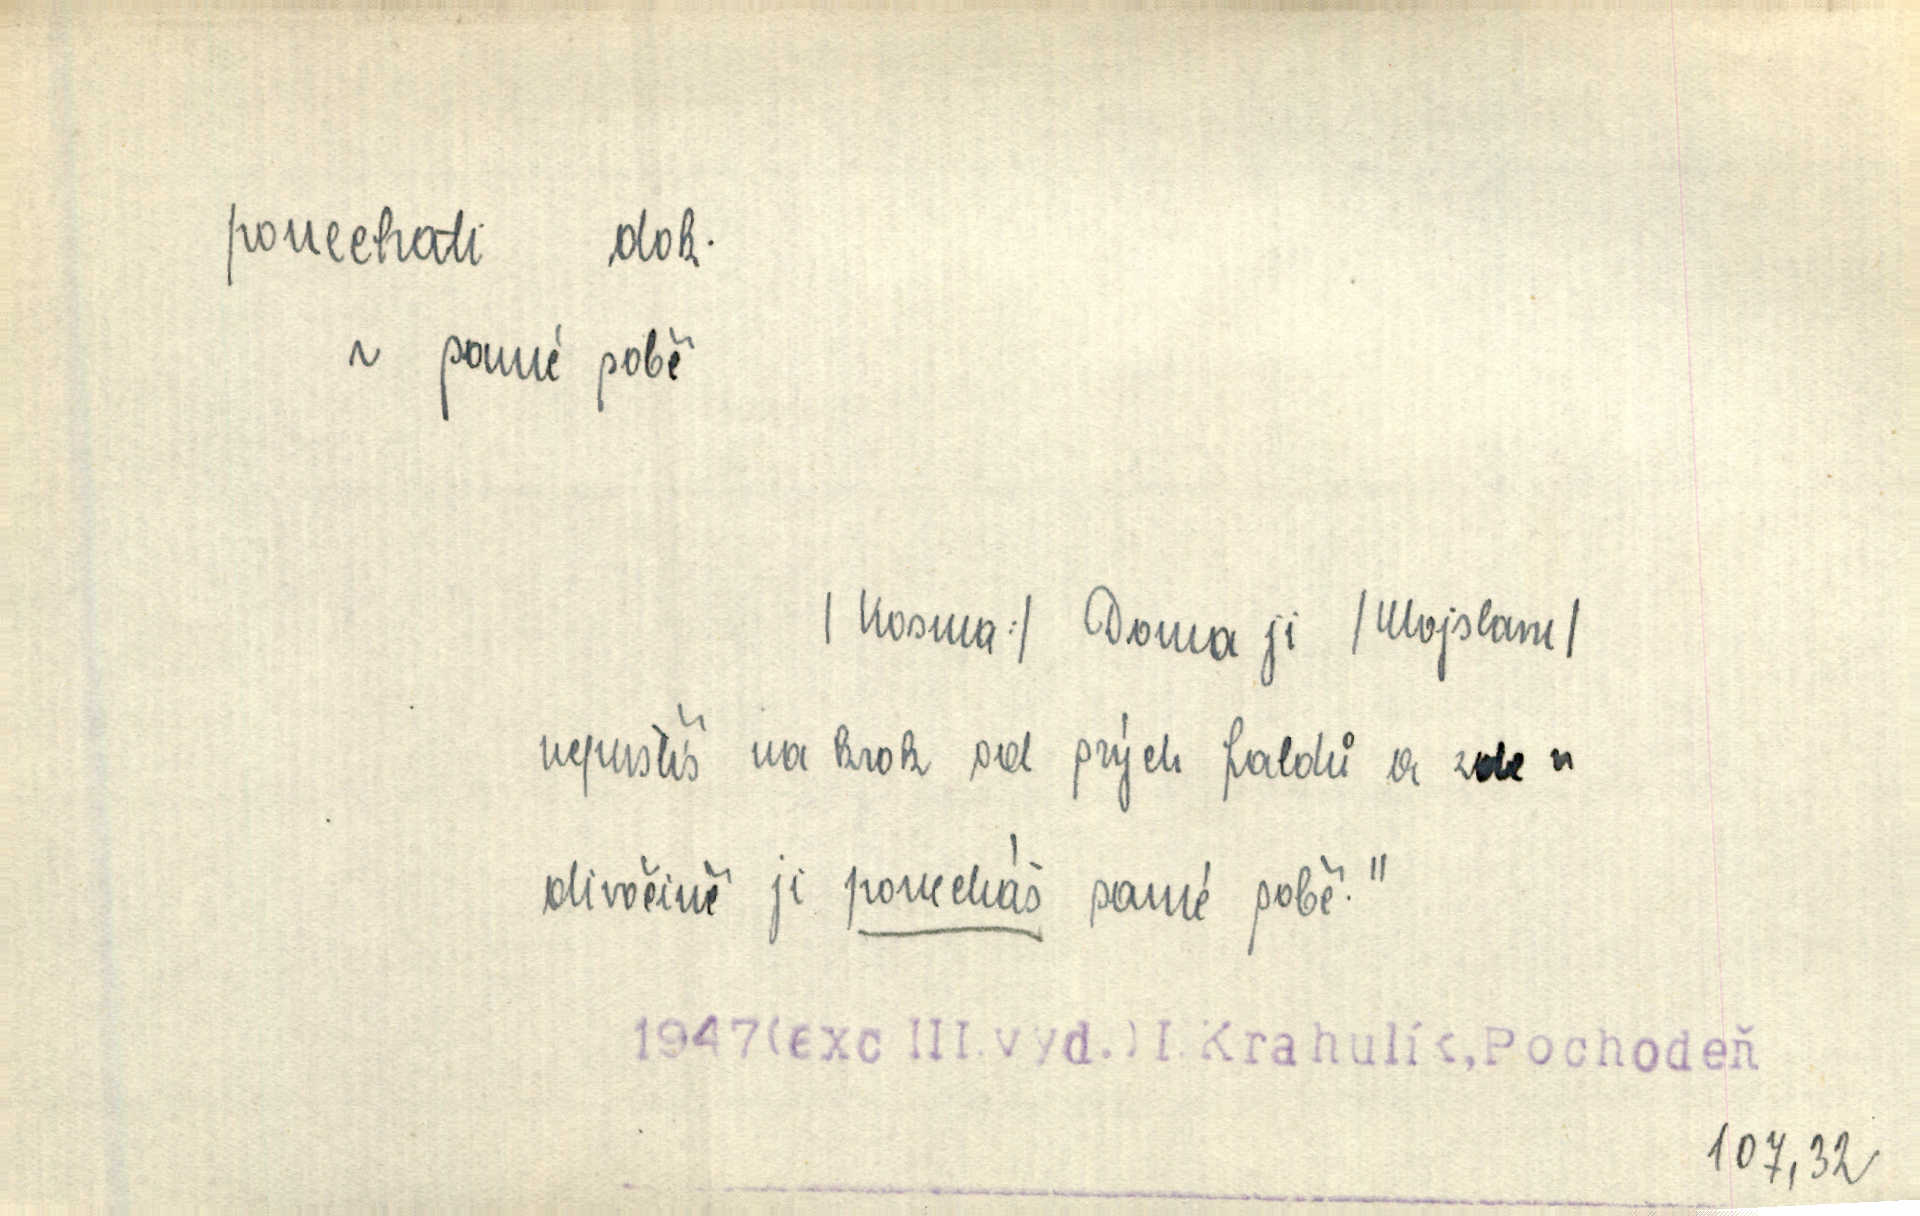 ponechati dok.
~ samé sobě
/Kosma:/ Doma ji /Mojslavu/
nepustíš na krok od svých faldů a zde v
divočině ji ponecháš samé sobě."
1947(exc III.vyd.)I.Krahulík,Pochodeň
107,32